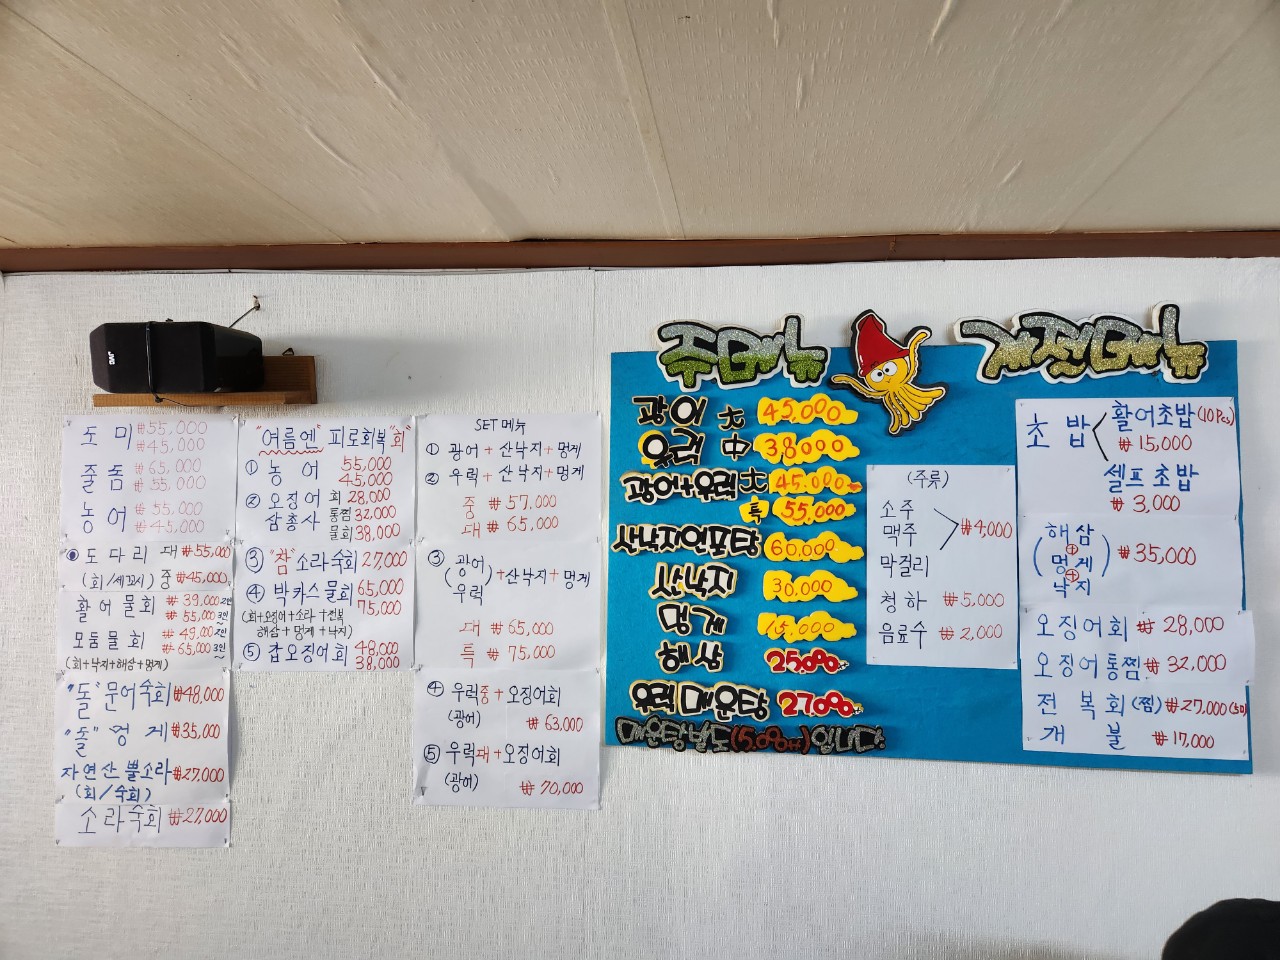 JVC
도 미 ₩55,000
₩45,000
줄돔 ₩65,000
₩55,000
농어 ₩55,000
₩45,000
도다리 대 ₩55,000
(회/세꼬시) 중 ₩45,000
활어물회 ₩39,000 2인
₩55,000 3인
모둠물회 ₩49,000 2인
₩65,000 3인~
(회+낙지+해삼+멍게)
"돌"문어숙회 ₩48,000
"돌" 멍 게 ₩35,000
자연산 뿔소라 ₩27,000
(회/숙회)
소라숙회 ₩27,000
"여름엔" 피로회복 "회"
① 농 어 55,000
45,000
② 오징어 회 28,000
삼총사 통찜 32,000
물회 38,000
③ "참"소라숙회 27,000
④ 박카스물회 65,000
75,000
(회+오징어+소라+전복
해삼+멍게+낙지)
⑤ 갑오징어회 48,000
38,000
SET 메뉴
① 광어 + 산낙지 + 멍게
② 우럭 + 산낙지 + 멍게
중 ₩57,000
대 ₩65,000
③ (광어
우럭) + 산낙지 + 멍게
대 ₩65,000
특 ₩75,000
④ 우럭중 + 오징어회
(광어) ₩63,000
⑤ 우럭대 + 오징어회
(광어) ₩70,000
주메뉴
광어 大 45.000
우럭 中 38.000
광어+우럭 大 45.000
특 55.000
산낙지연포탕 60.000
산낙지 30.000
멍게 15.000
해삼 25.000
우럭매운탕 27.000
매운탕별도(5.000) 입니다.
(주류)
소주
맥주 ₩4,000
막걸리
청하 ₩5,000
음료수 ₩2,000
계절메뉴
초 밥 활어초밥 (10Pcs)
₩15,000
셀프초밥
₩3,000
(해삼
+
멍게
+
낙지) ₩35,000
오징어회 ₩28,000
오징어통찜 ₩32,000
전복회(찜) ₩27,000
개 불 ₩17,000